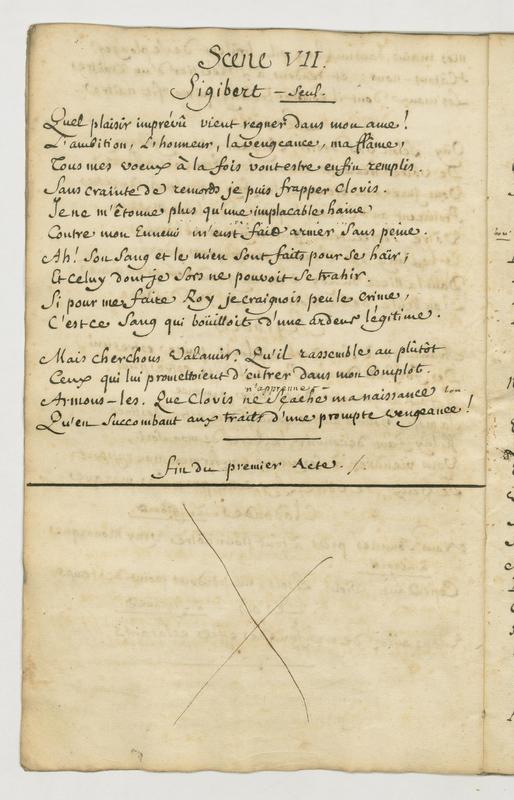 Scene VII.
Sigibert - Seul.
Quel plaisir imprévû vient regner dans mon ame!
L'ambition, L'honneur, la vengeance, ma flâme,
Tous mes voeux à la fois vont estre enfin remplis.
Sans crainte de remords je puis frapper Clovis.
Je ne m'étonne plus qu'une implacable haine
Contre mon Ennemi m'eust fait armer sans peine.
Ah! Son Sang et le mien sont faits pour se haïr;
Et celuy dont je sors ne pouvoit se trahir.
Si pour me faire Roy je craignois peu le crime,
C'est ce Sang qui boüilloit d'une ardeur légitime.
Mais cherchons Valamir. Qu'il rassemble au plûtôt
Ceux qui lui promettoient d'entrer dans mon complot.
n'apprenne
Armons-les. Que Clovis ne sçache ma naissance
Qu'en succombant aux traits d'une prompte vengeance!
fin du premier Acte.